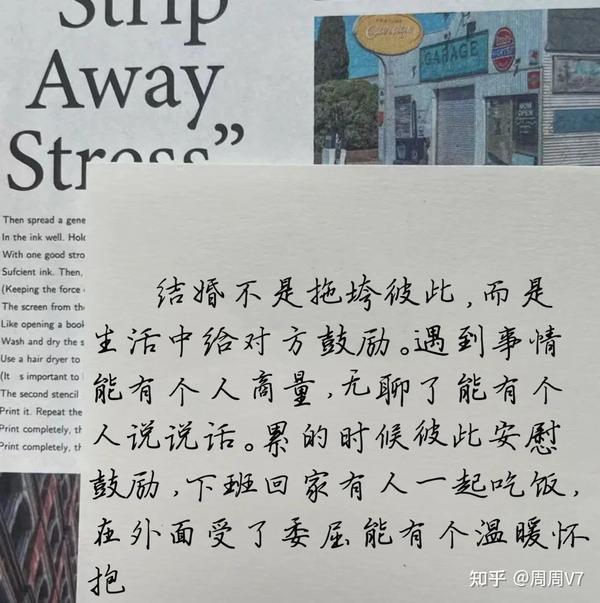 Strip
Away
Stress”
Then spread a gene
In the ink well. Hold
With one good stro
Sufcient ink. Then,
(Keeping the force
The screen from th
Like opening a book
Wash and dry the s
Use a hair dryer to
(It s important to
The second stencil
Print it. Repeat the
Print completely, th
Print completely, th
GARAGE
NOW
OPEN
结婚不是拖垮彼此，而是
生活中给对方鼓励。遇到事情
能有个人商量，无聊了能有个
人说说话。累的时候彼此安慰
鼓励，下班回家有人一起吃饭，
在外面受了委屈能有个温暖怀
抱
知乎 @周周V7